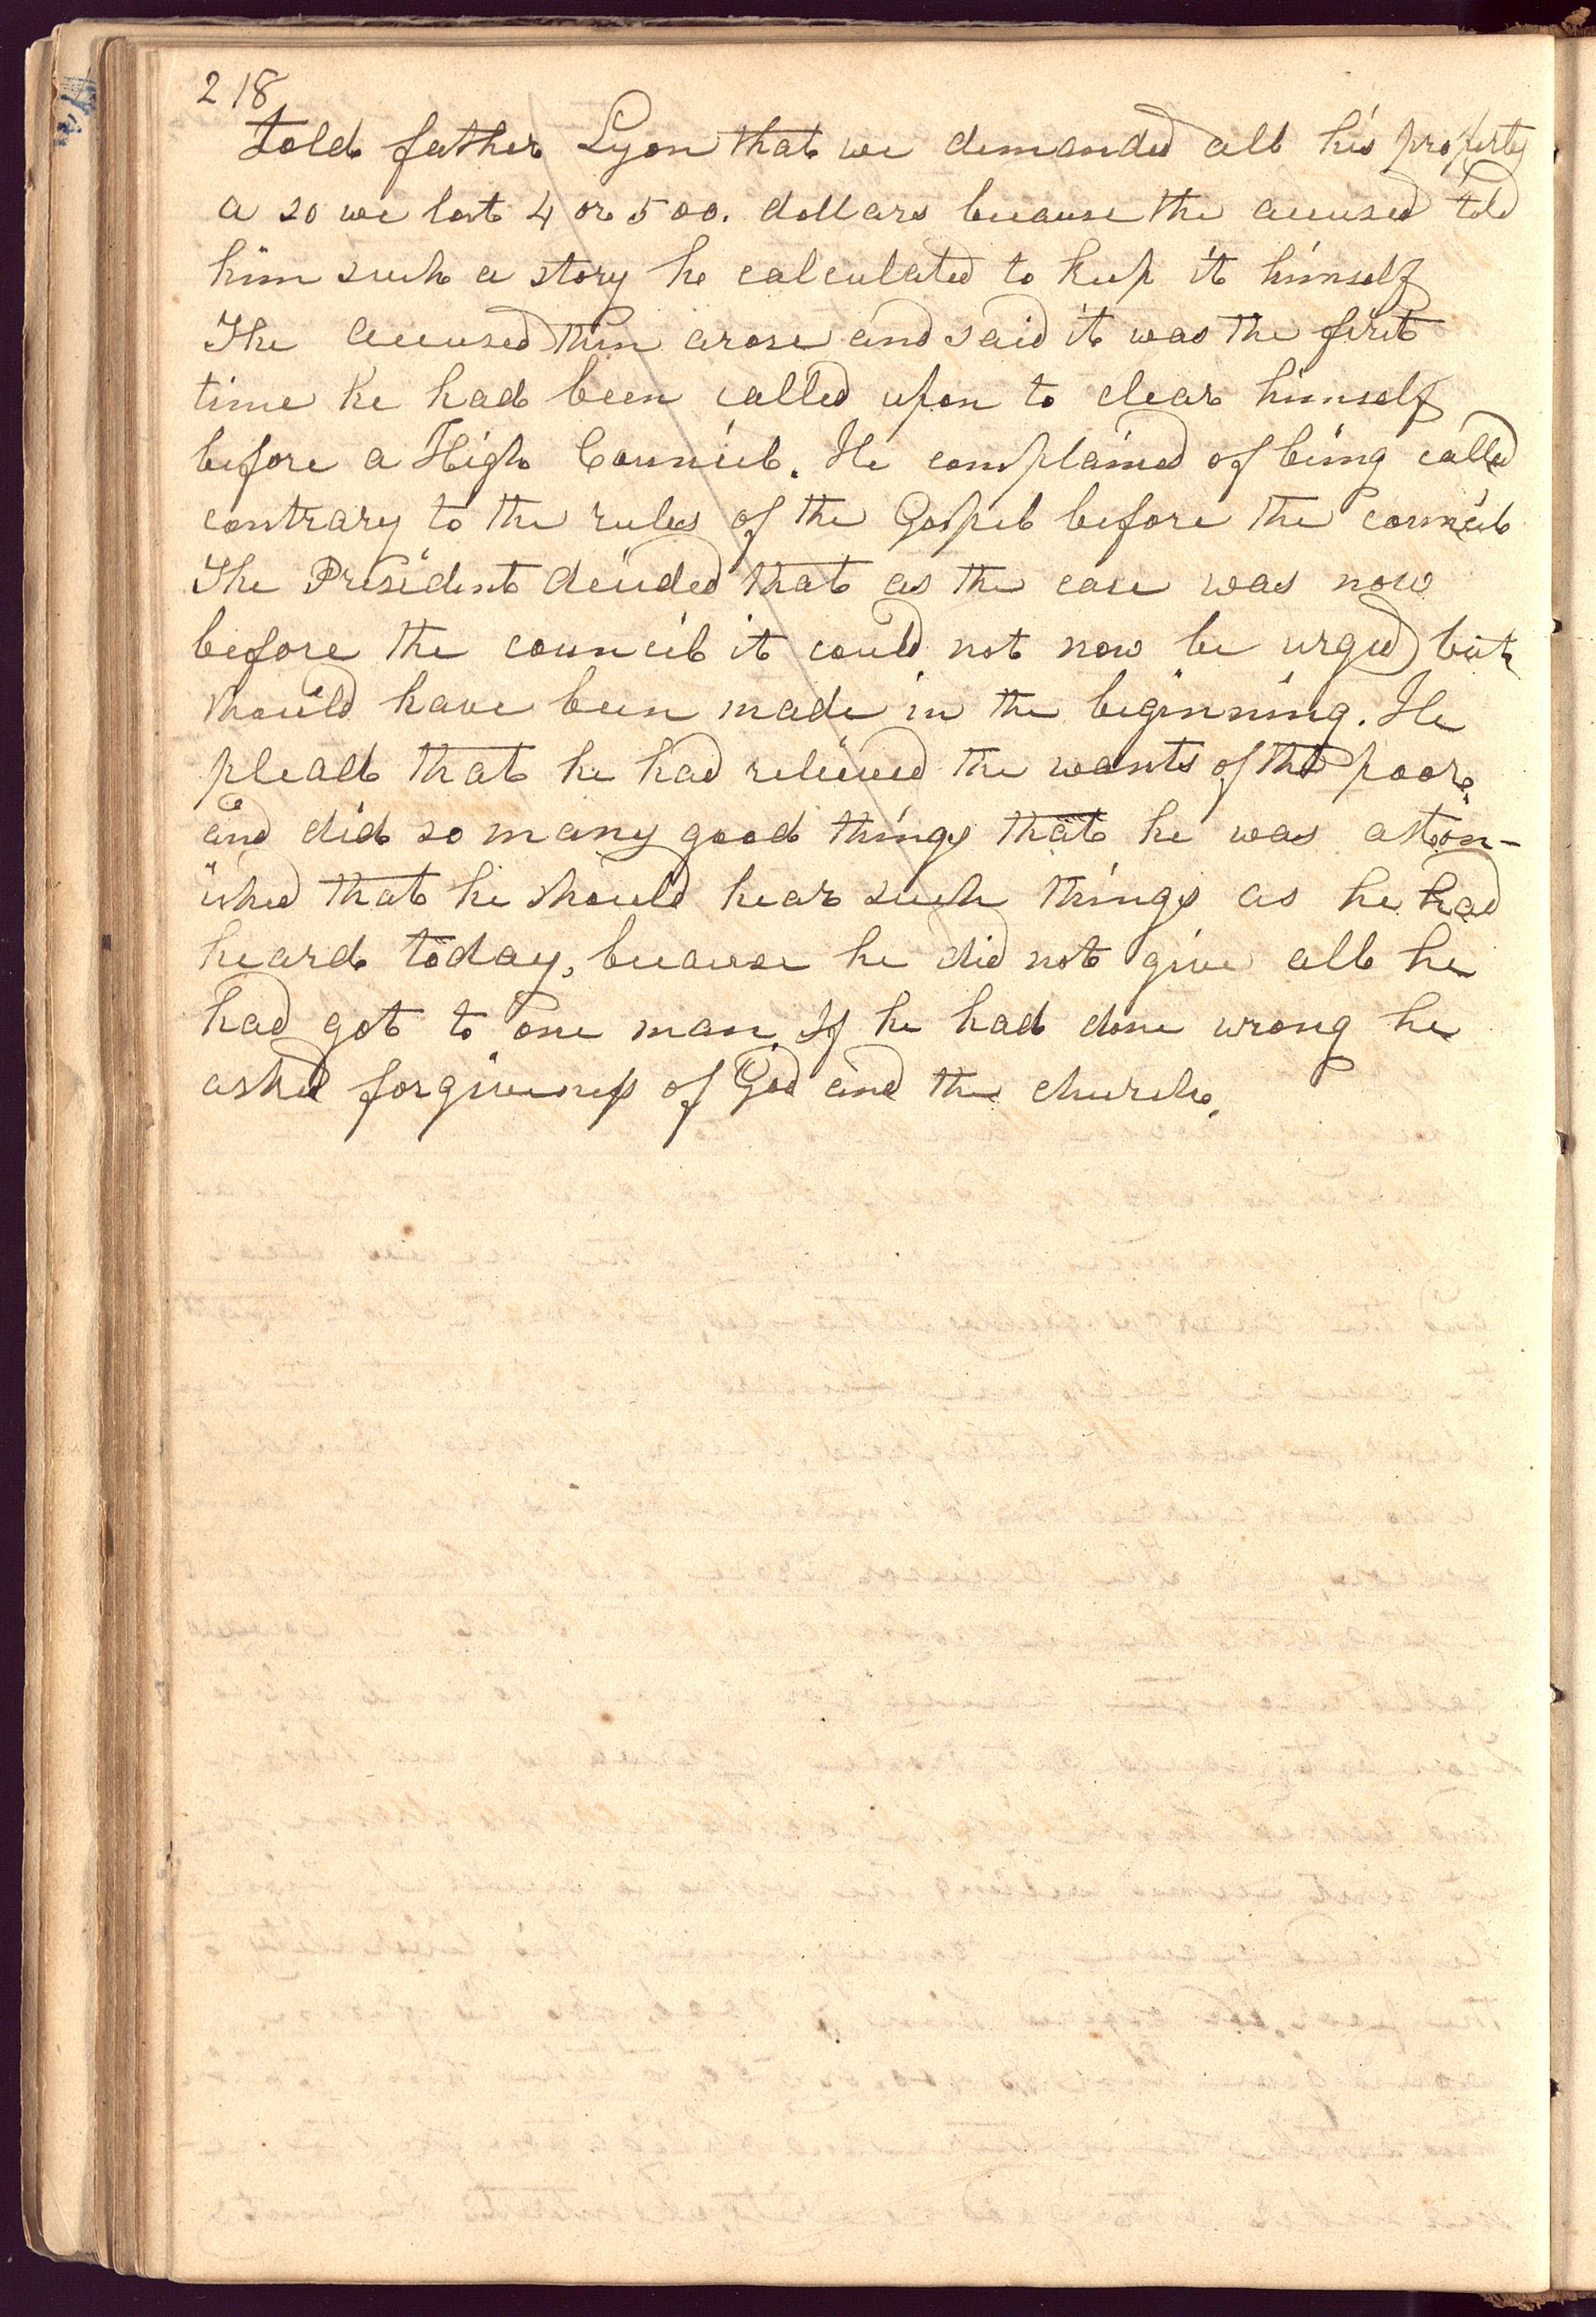 218
told father Lyon that we demanded all his property
a so we lost 4 or 500. dollars because the accused told
him such a story he calculated to keep it himself
The accused then arose and said it was the first
time he had been called upon to clear himself
before a High Council. He complained of being called
contrary to the rules of the Gospel before the council
The President decided that as the case was now
before the council it could not now be urged but
should have been made in the beginning. He
plead that he had relieved the wants of the poor.
and did so many good things that he was aston-
ished that he should hear such things as he had
heard today, because he did not give all he
had got to one man. If he had done wrong he
asked forgiveness of God and the church.